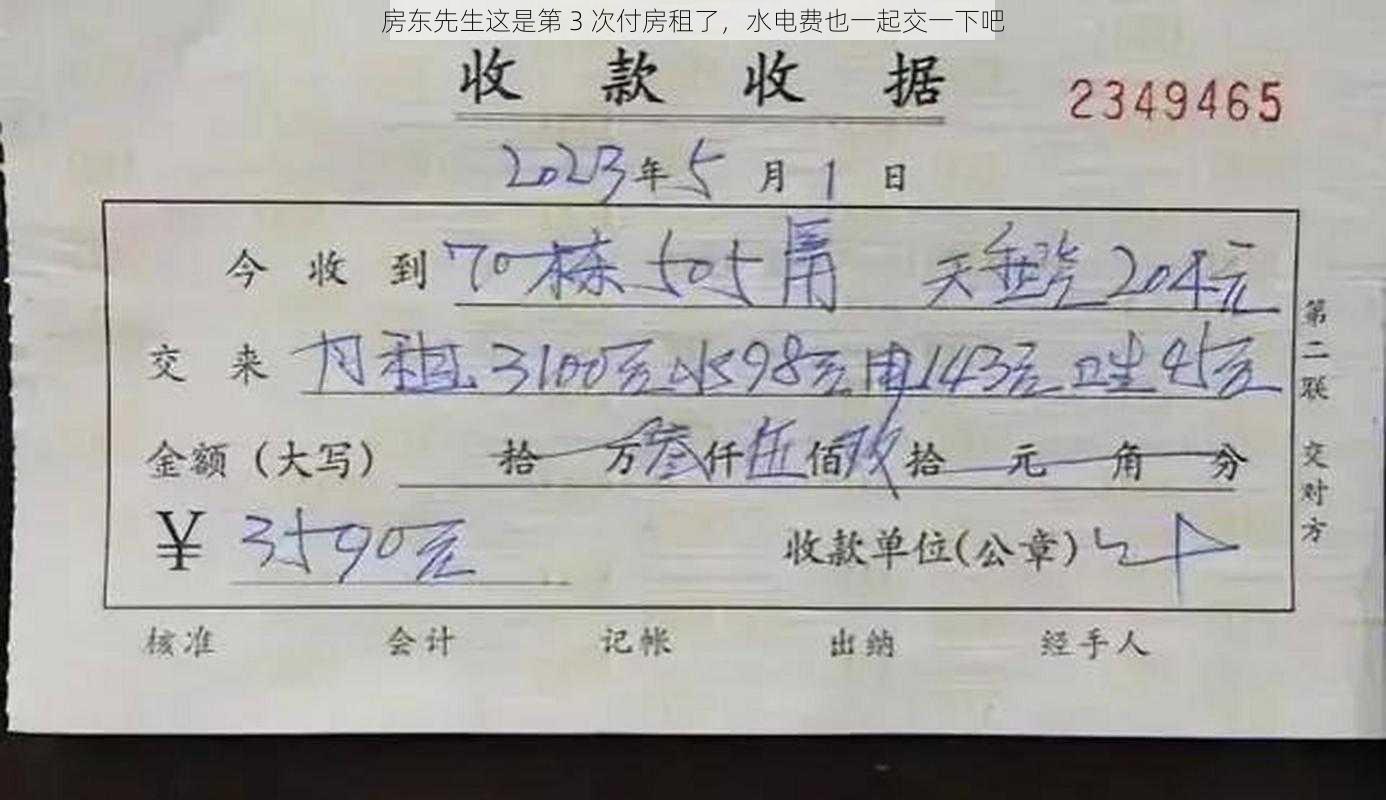 房东先生这是第 3 次付房租了，水电费也一起交一下吧
收款收据
2349465
2023年5月1日
今收到70栋505房 天然气204元
交来月租3100元水98元电143元卫生45元
金额（大写） 拾万叁仟伍佰玖拾元角分
￥3590元 收款单位(公章)
核准 会计 记帐 出纳 经手人
第二联 交对方